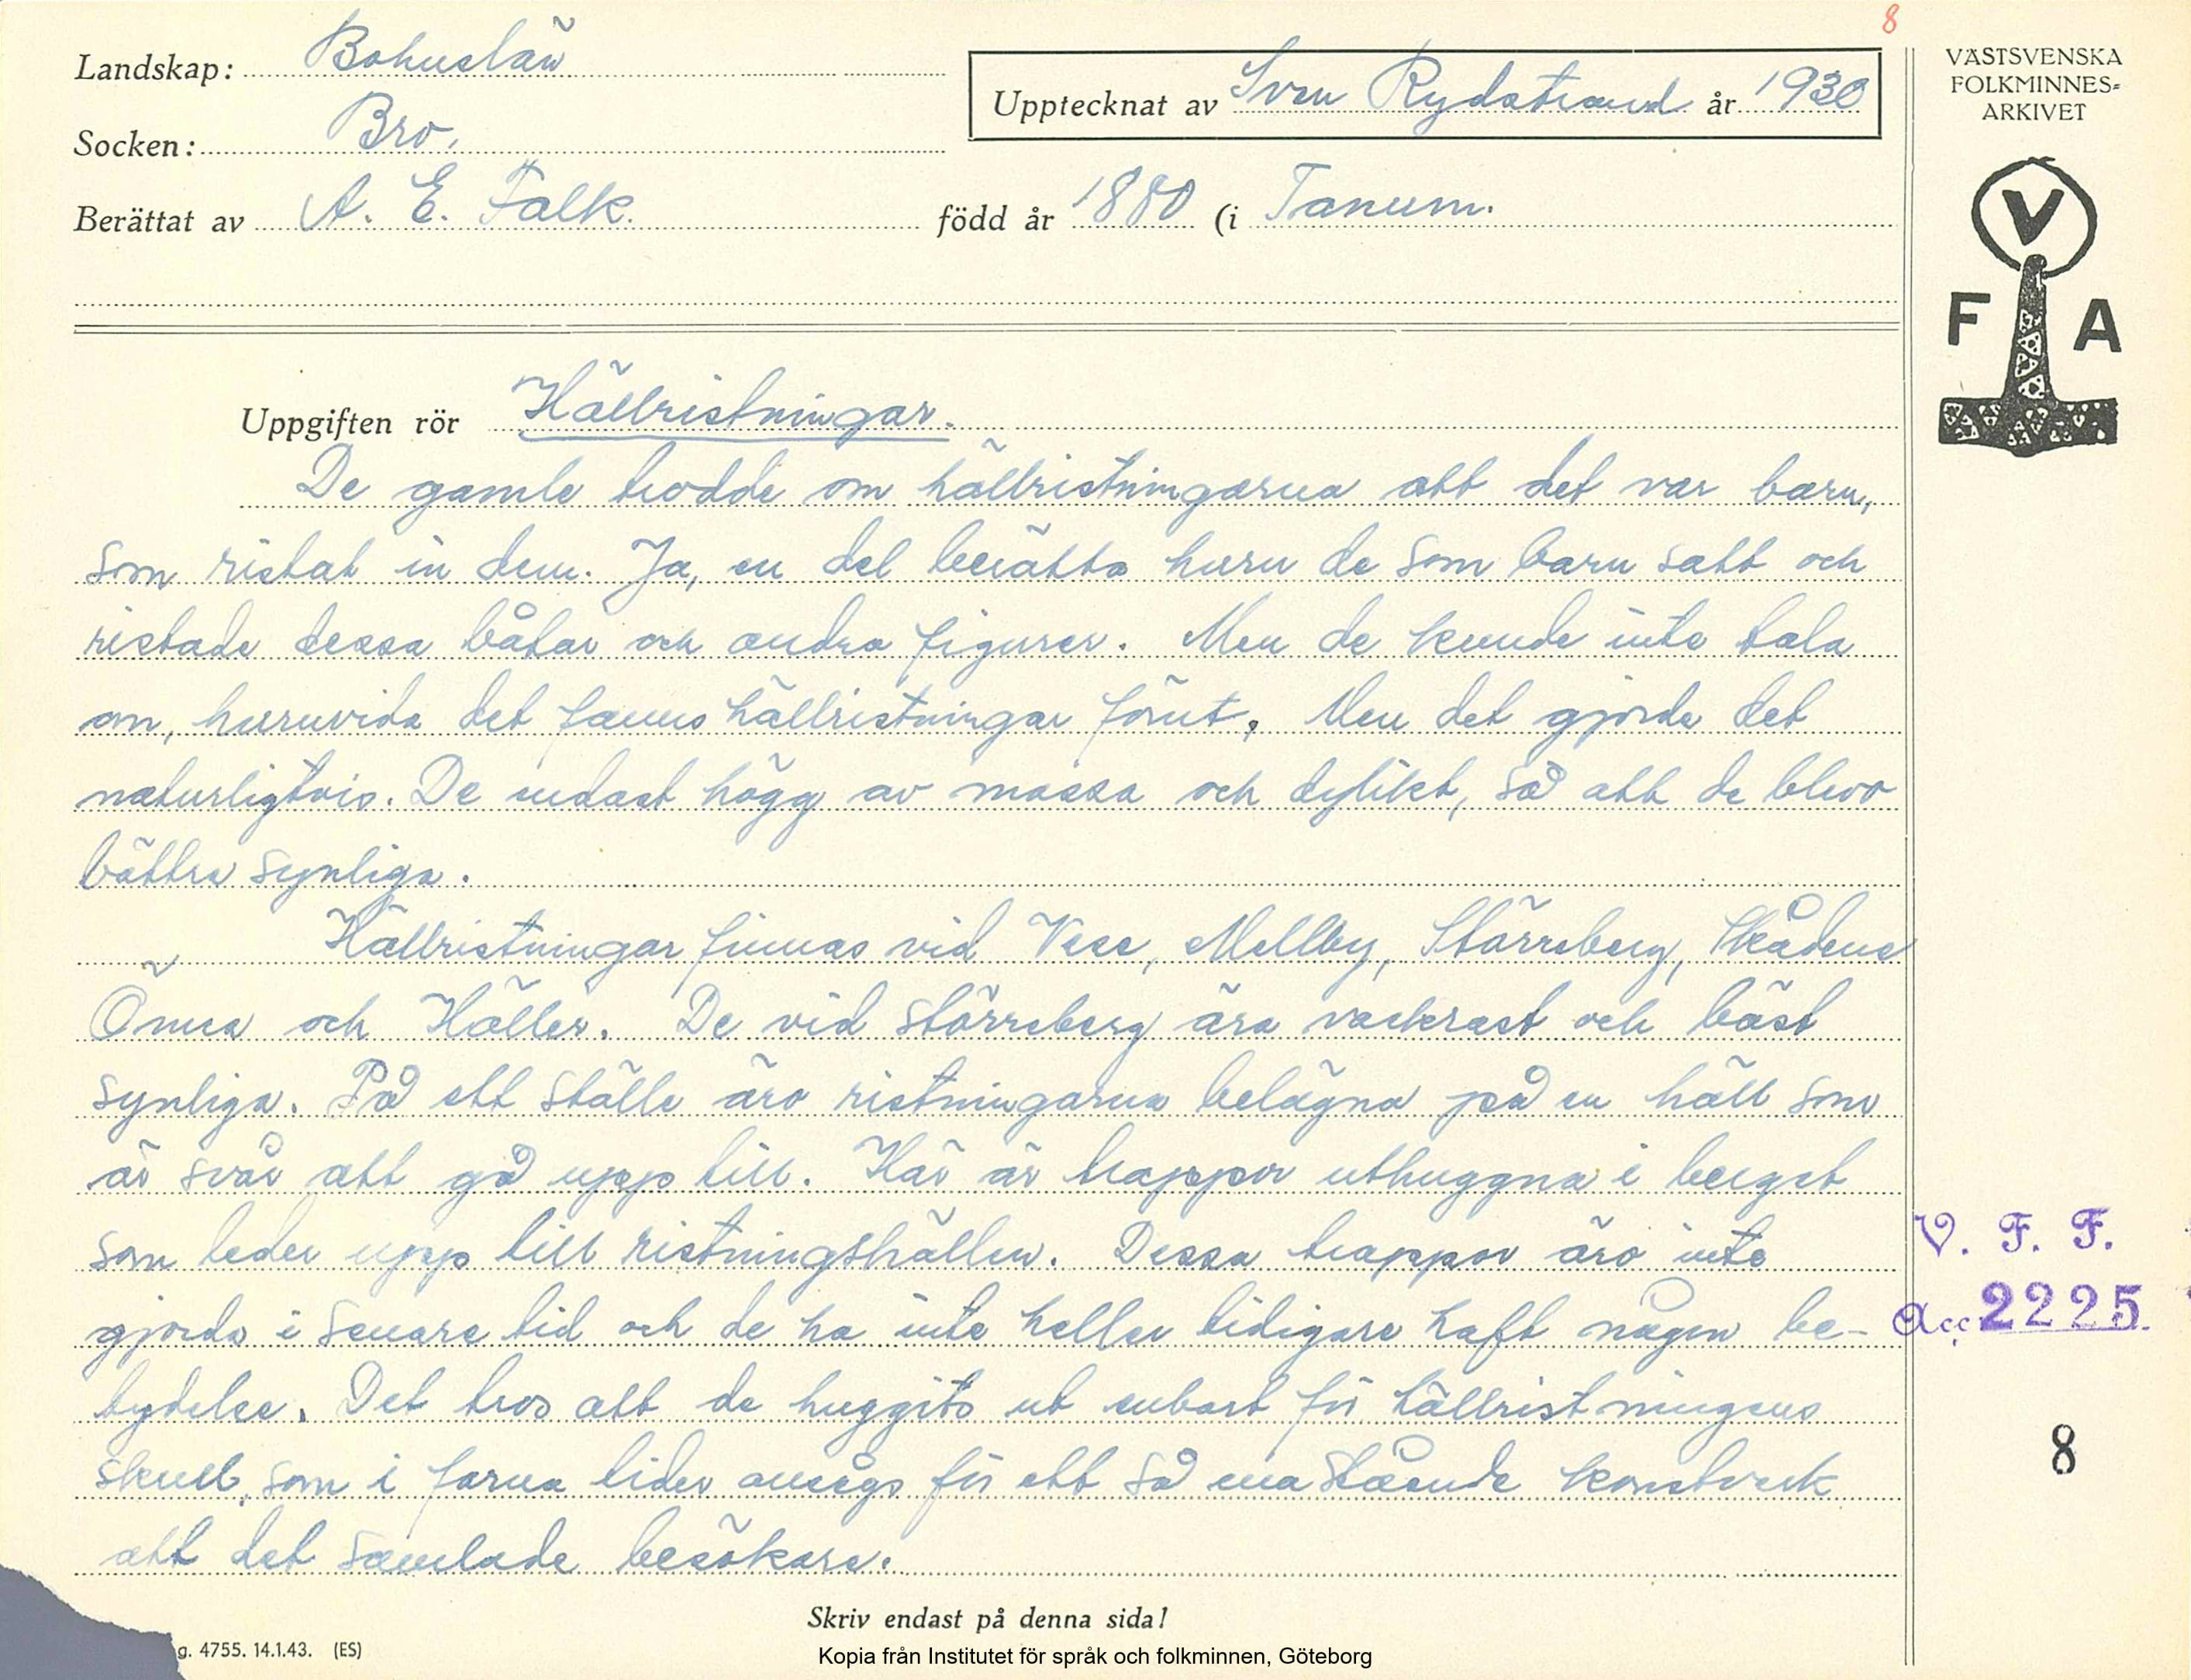 8
Landskap: Bohuslän
Socken: Bro.
Berättat av A. E. Falk. född år 1880 (i Tanum.
Upptecknat av Sven Rydstrand år 1930
VÄSTSVENSKA
FOLKMINNES-
ARKIVET
V
F A
Uppgiften rör Hällristningar.
De gamle trodde om hällristningarna att det var barn,
som ristat in dem. Ja, en del berätta huru de som barn satt och
ristade dessa båtar och andra figurer. Men de kunde inte tala
om, huruvida det fanns hällristningar förut. Men det gjorde det
naturligtvis. De endast högg av mossa och dylikt, så att de blevo
bättre synliga.
Hällristningar finnas vid Vese, Mellby, Störreberg, Skådene
Önna och Häller. De vid Störreberg äro vackrast och bäst
synliga. På ett ställe äro ristningarna belägna på en häll som
är svår att gå upp till. Här är trappor uthuggna i berget
som leder upp till ristningshällen. Dessa trappor äro inte
gjorda i senare tid och de ha inte heller tidigare haft någon be-
tydelse. Det tros att de huggits ut enbart för hällristningens
skull, som i forna tider ansågs för ett så enastående konstverk
att det samlade besökare.
V. F. F.
Acc. 2225
8
Skriv endast på denna sida!
g. 4755. 14.1.43. (ES)
Kopia från Institutet för språk och folkminnen, Göteborg